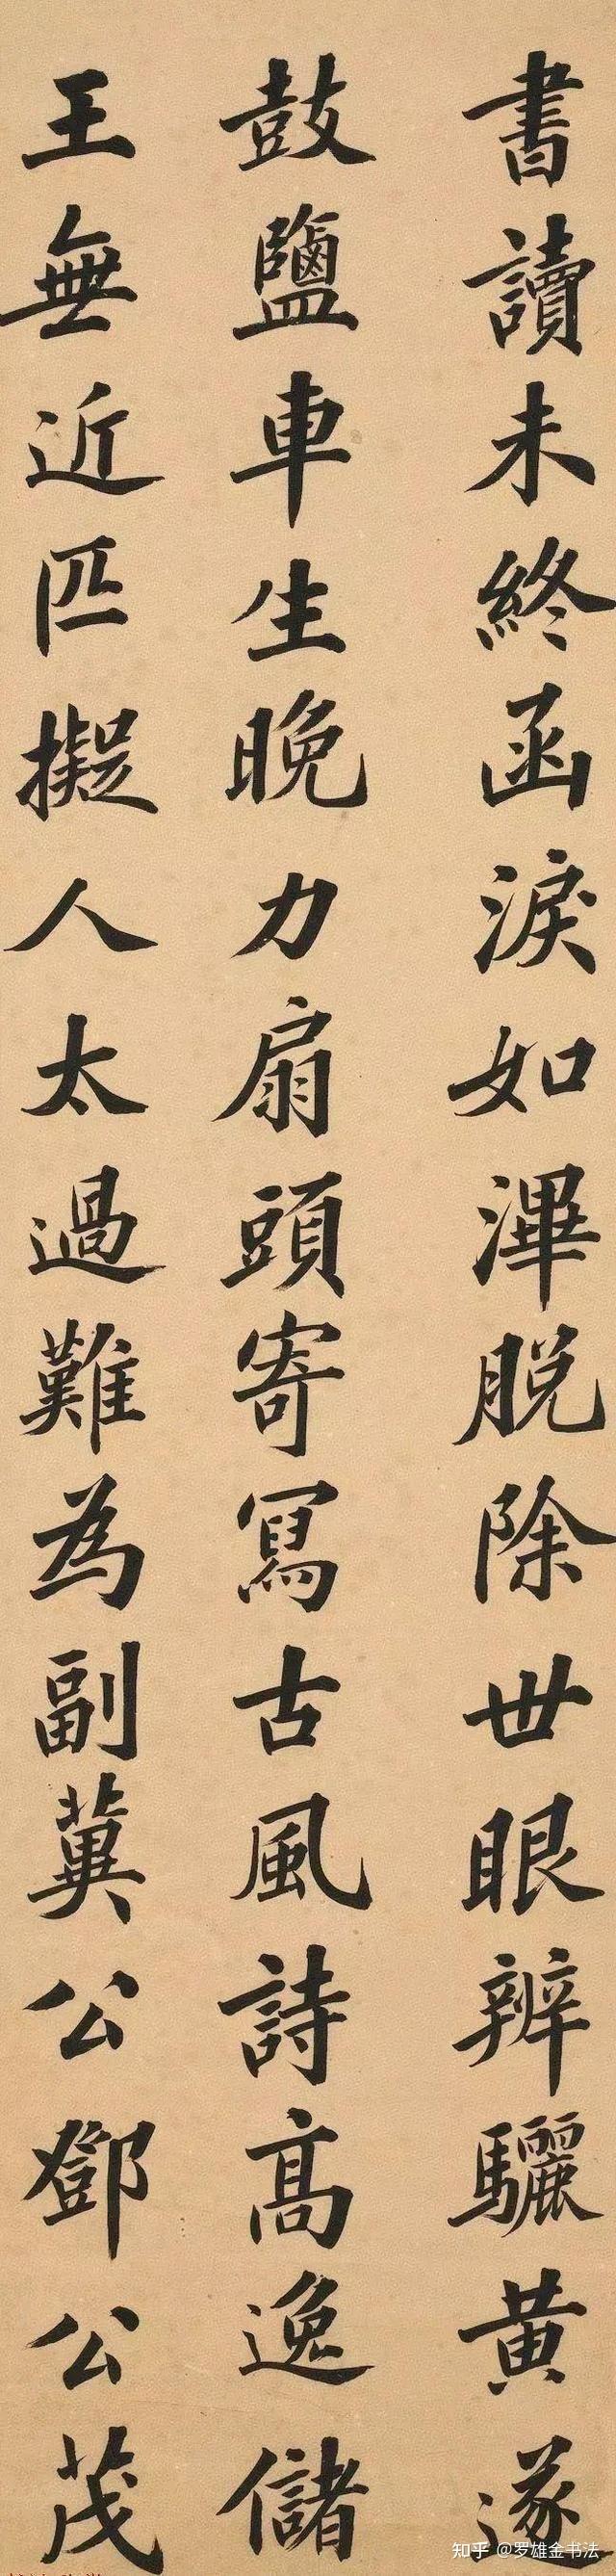 書讀未終函淚如潷脫除世眼辨驪黃遂
鼓鹽車生晚力扇頭寄寫古風詩高逸儲
王無近匹擬人太過難為副冀公鄧公茂
知乎 @罗雄金书法